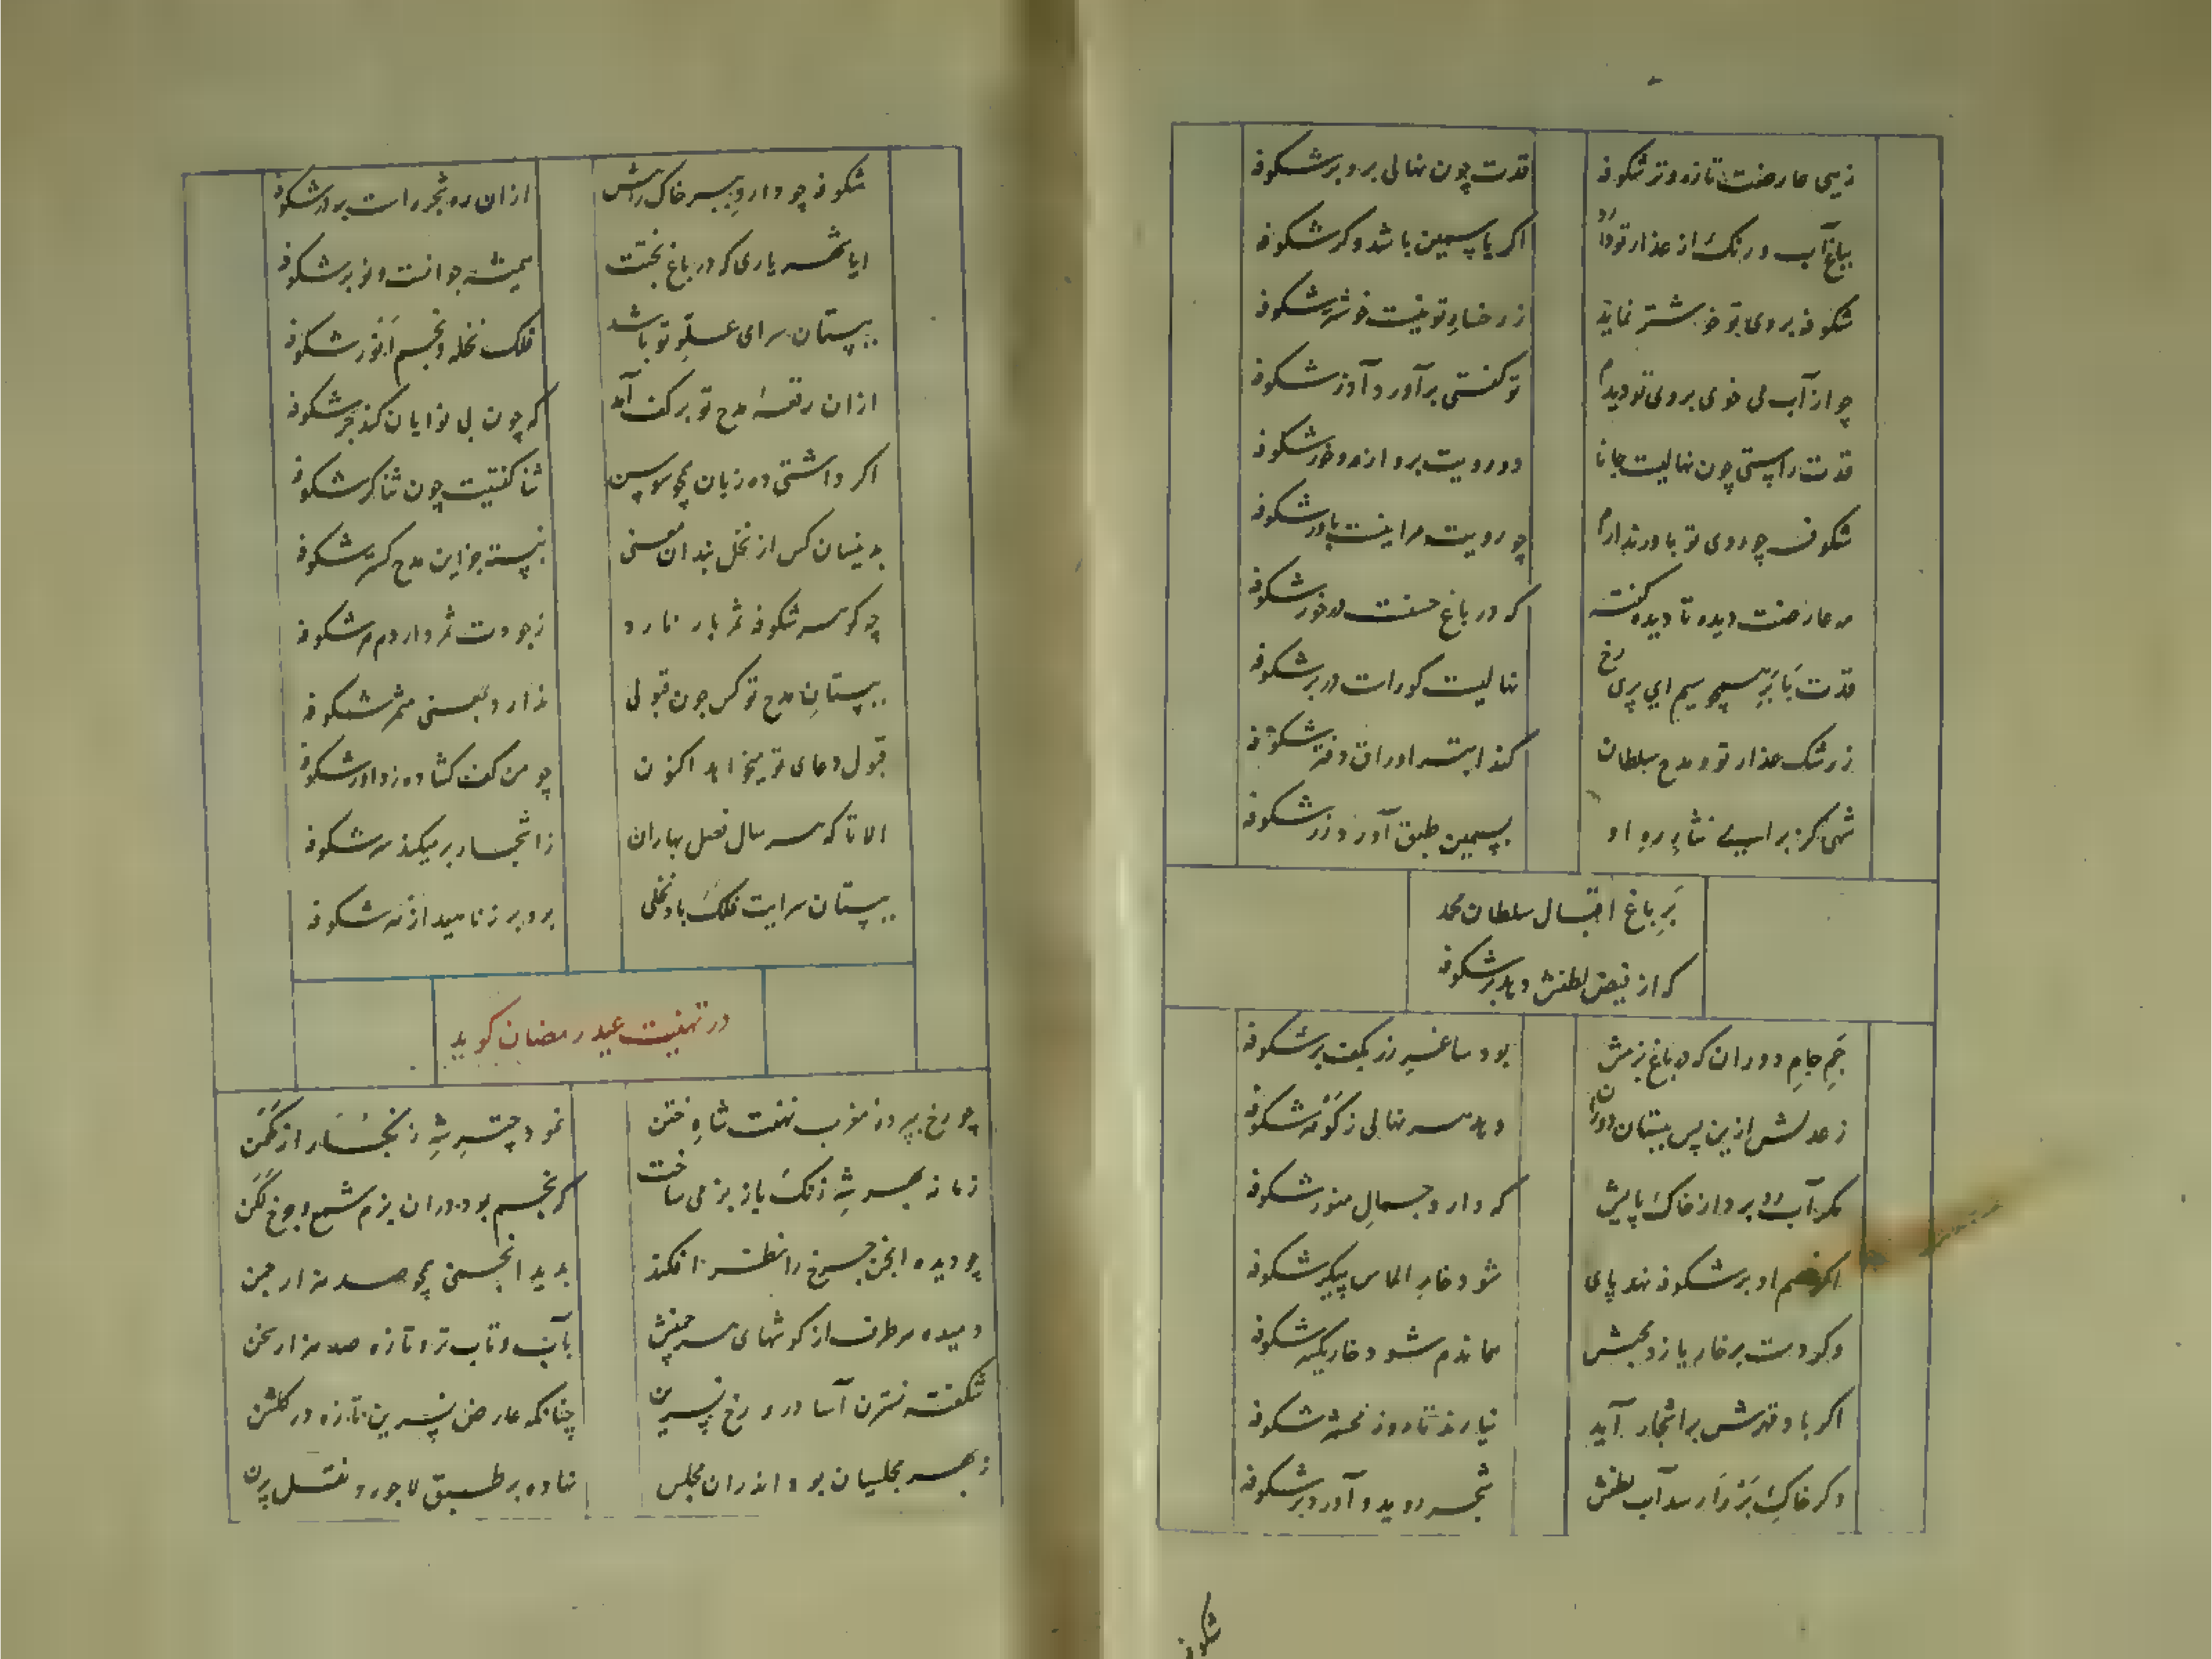 زهی عارضت تازه و تر شکوفه
قدت چون نهالی برو بر شکوفه
بباغ آب و رنک از عذار تو دارد
اکر یاسمین باشد و کر شکوفه
شکوفه بروی تو خوشتر نماید
ز رخسار تو نیست خوشتر شکوفه
چو از آب می خوی بروی تو دیدم
تو کفتی برآورد آذر شکوفه
قدت راستی چون نهالیست جانا
دو رویت برو از مه و خور شکوفه
شکوفه چو روی تو باور ندارم
چو رویت مرا نیست باور شکوفه
مه عارضت دیده تا دیده کفته
که در باغ حسنت درخور شکوفه
قدت با بر همچو سیم ای پری رخ
نهالیست کوراست در بر شکوفه
ز رشک عذار تو و مدح سلطان
کند ابتر اوراق دفتر شکوفه
شهی کز برای نثار ره او
بسیمین طبق آورد زر شکوفه
بر باغ اقبال سلطان محمد
که از فیض لطفش دهد بر شکوفه
جم جام دوران که در باغ بزمش
بود ساغر زر بکف بر شکوفه
ز عدلش ازین پس ببستان دوران
دهد هر نهالی ز کوهر شکوفه
مکر آب رو برد از خاک پایش
که دارد جمال منور شکوفه
اکر خصم او بر شکوفه نهد پای
شود خار الماس پیکر شکوفه
وکر دست بر خار یازد محبش
هماندم شود خار یکسر شکوفه
اکر باد قهرش بر اشجار آید
نیارند تا روز محشر شکوفه
وکر خاک بتر را رسد آب لطفش
شجر روید و آورد بر شکوفه
شکوفه
شکوفه چو دارد بسر خاک راهش
از ان رو شجر راست بر سر شکوفه
ایا شهریاری که در باغ بختت
همیشه جوانست و نوبر شکوفه
ببستان سرای علو تو باشد
فلک نخله و نجم انور شکوفه
ازان رقعهٔ مدح تو برکف آمد
که چون بی نوایان کند جر شکوفه
اکر داشتی ده زبان همچو سوسن
ثنا کفتیت چون ثناکر شکوفه
بدینسان کس از نخل بندان معنی
نبسته جز این مدح کستر شکوفه
چه کوهر شکوفه ثمر بار نارد
ز جودت ثمر دارد مهر شکوفه
ببستان مدح تو کس چون قبولی
ندارد بمعنی مثمر شکوفه
قبول دعای تو میخواهد اکنون
چو من کف کشاده ز داور شکوفه
الا تا که هر سال فصل بهاران
ز اشجار بر میکند سر شکوفه
ببستان سرایت فلک باد نخلی
برو بر ز ناهید ازهر شکوفه
در تهنیت عید رمضان کوید
چو رخ بپرده مغرب نهفت شاه ختن
نمود چتر شه زنکبار از مکمن
زمانه بهر شه زنک باز بزمی ساخت
که نجم بود دران بزم شمع و چرخ لکن
چو دیده انجمن چرخ را نظر افکند
بدید انجمنی همچو صد هزار چمن
دمیده هر طرف از کوشهای هر چمنش
بآب و تاب تر و تازه صد هزار سخن
شکفته نسترن آسا درو رخ نسرین
چنانکه عارض نسرین تازه در کلشن
ز بهر مجلسیان بود اندران مجلس
نهاده بر طبق لاجورد نقل پرن